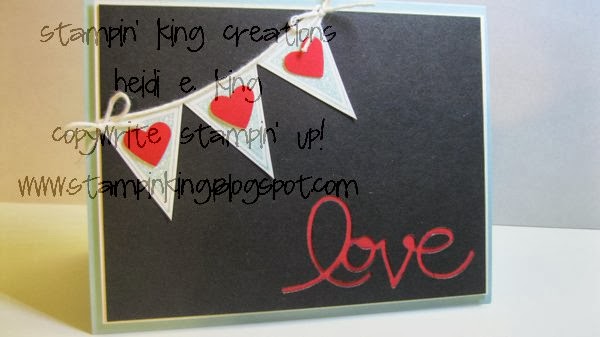 stampin' king creations
heidi e. king
copywrite stampin' up!
www.stampinking.blogspot.com
love